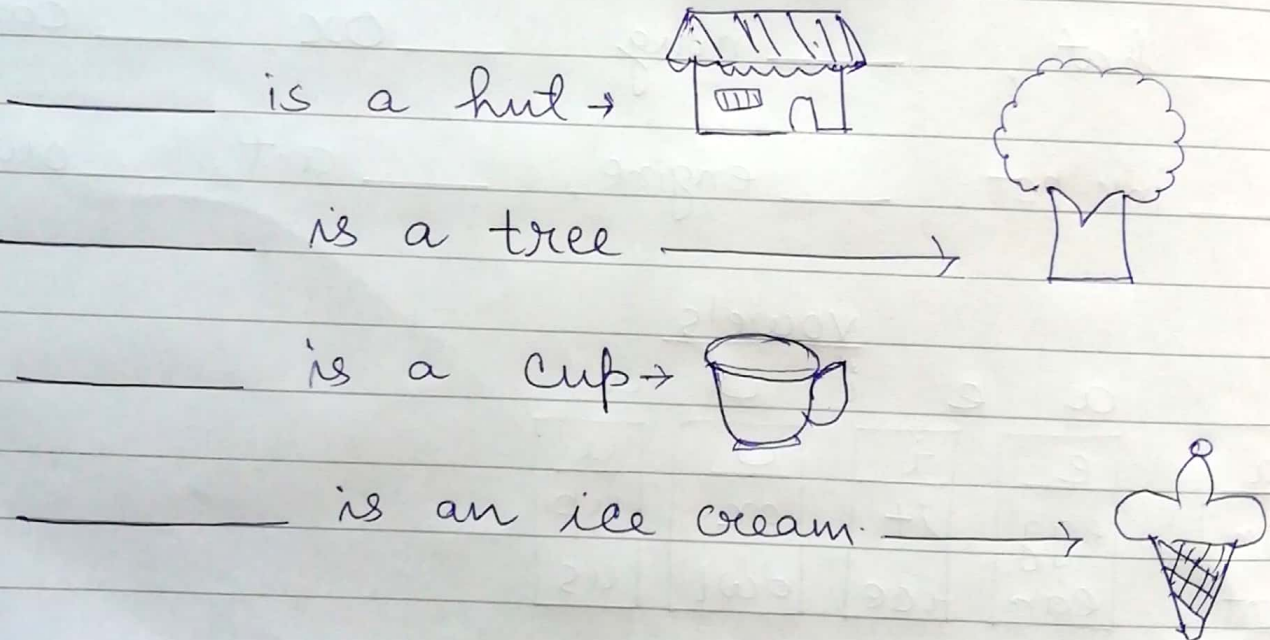 ________ is a hut →
________ is a tree →
________ is a cup →
________ is an ice cream. →